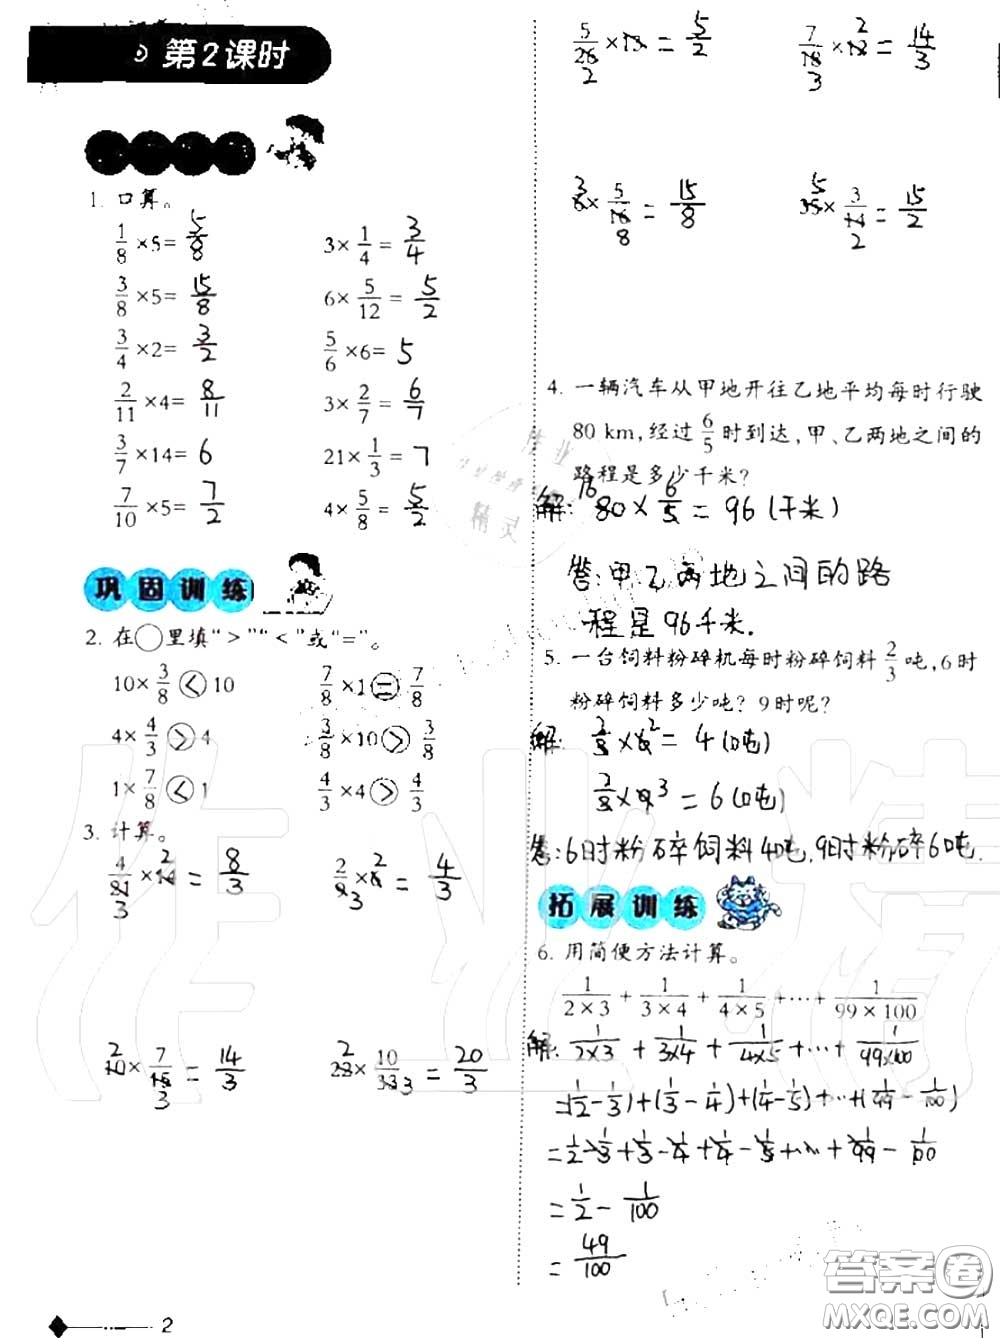 第2课时
1. 口算。
1/8 ×5= 5/8
3× 1/4 = 3/4
3/8 ×5= 15/8
6× 5/12 = 5/2
3/4 ×2= 3/2
5/6 ×6= 5
2/11 ×4= 8/11
3× 2/7 = 6/7
3/7 ×14= 6
21× 1/3 = 7
7/10 ×5= 7/2
4× 5/8 = 5/2
巩固训练
2. 在○里填“>”“<”或“=”。
10× 3/8 < 10
7/8 ×1 = 7/8
4× 4/3 > 4
3/8 ×10 > 3/8
1× 7/8 < 1
4/3 ×4 > 4/3
3. 计算。
4/21 ×14 = 8/3
3 2
= 4/3
3 2
10× 7/15 = 14/3
2 3
= 20/3
2 3
5/26 ×13 = 5/2
2
7/18 ×12 = 14/3
3 2
6× 5/16 = 15/8
3 8
35× 3/14 = 15/2
5 2
4. 一辆汽车从甲地开往乙地平均每时行驶
80 km,经过 6/5 时到达,甲、乙两地之间的
路程是多少千米?
解: 80 × 6/5 = 96 (千米)
16
答:甲乙两地之间的路
程是96千米.
5. 一台饲料粉碎机每时粉碎饲料 2/3 吨,6时
粉碎饲料多少吨? 9时呢?
解: 2/3 ×6 = 4 (吨)
2
2/3 ×9 = 6 (吨)
3
答:6时粉碎饲料4吨,9时粉碎6吨.
拓展训练
6. 用简便方法计算。
1/(2×3) + 1/(3×4) + 1/(4×5) +…+ 1/(99×100)
解: 1/(2×3) + 1/(3×4) + 1/(4×5) +…+ 1/(99×100)
=(1/2 - 1/3)+(1/3 - 1/4)+(1/4 - 1/5)+…+(1/99 - 1/100)
= 1/2 - 1/3 + 1/3 - 1/4 + 1/4 - 1/5 +…+ 1/99 - 1/100
= 1/2 - 1/100
= 49/100
2
作业精
精灵
答案圈
MXQE.COM